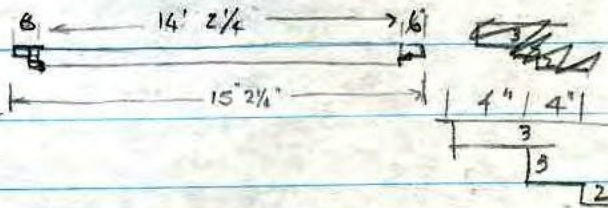 6 14' 2¼ 6"
15" 2¼"
4" 4"
3
3
2